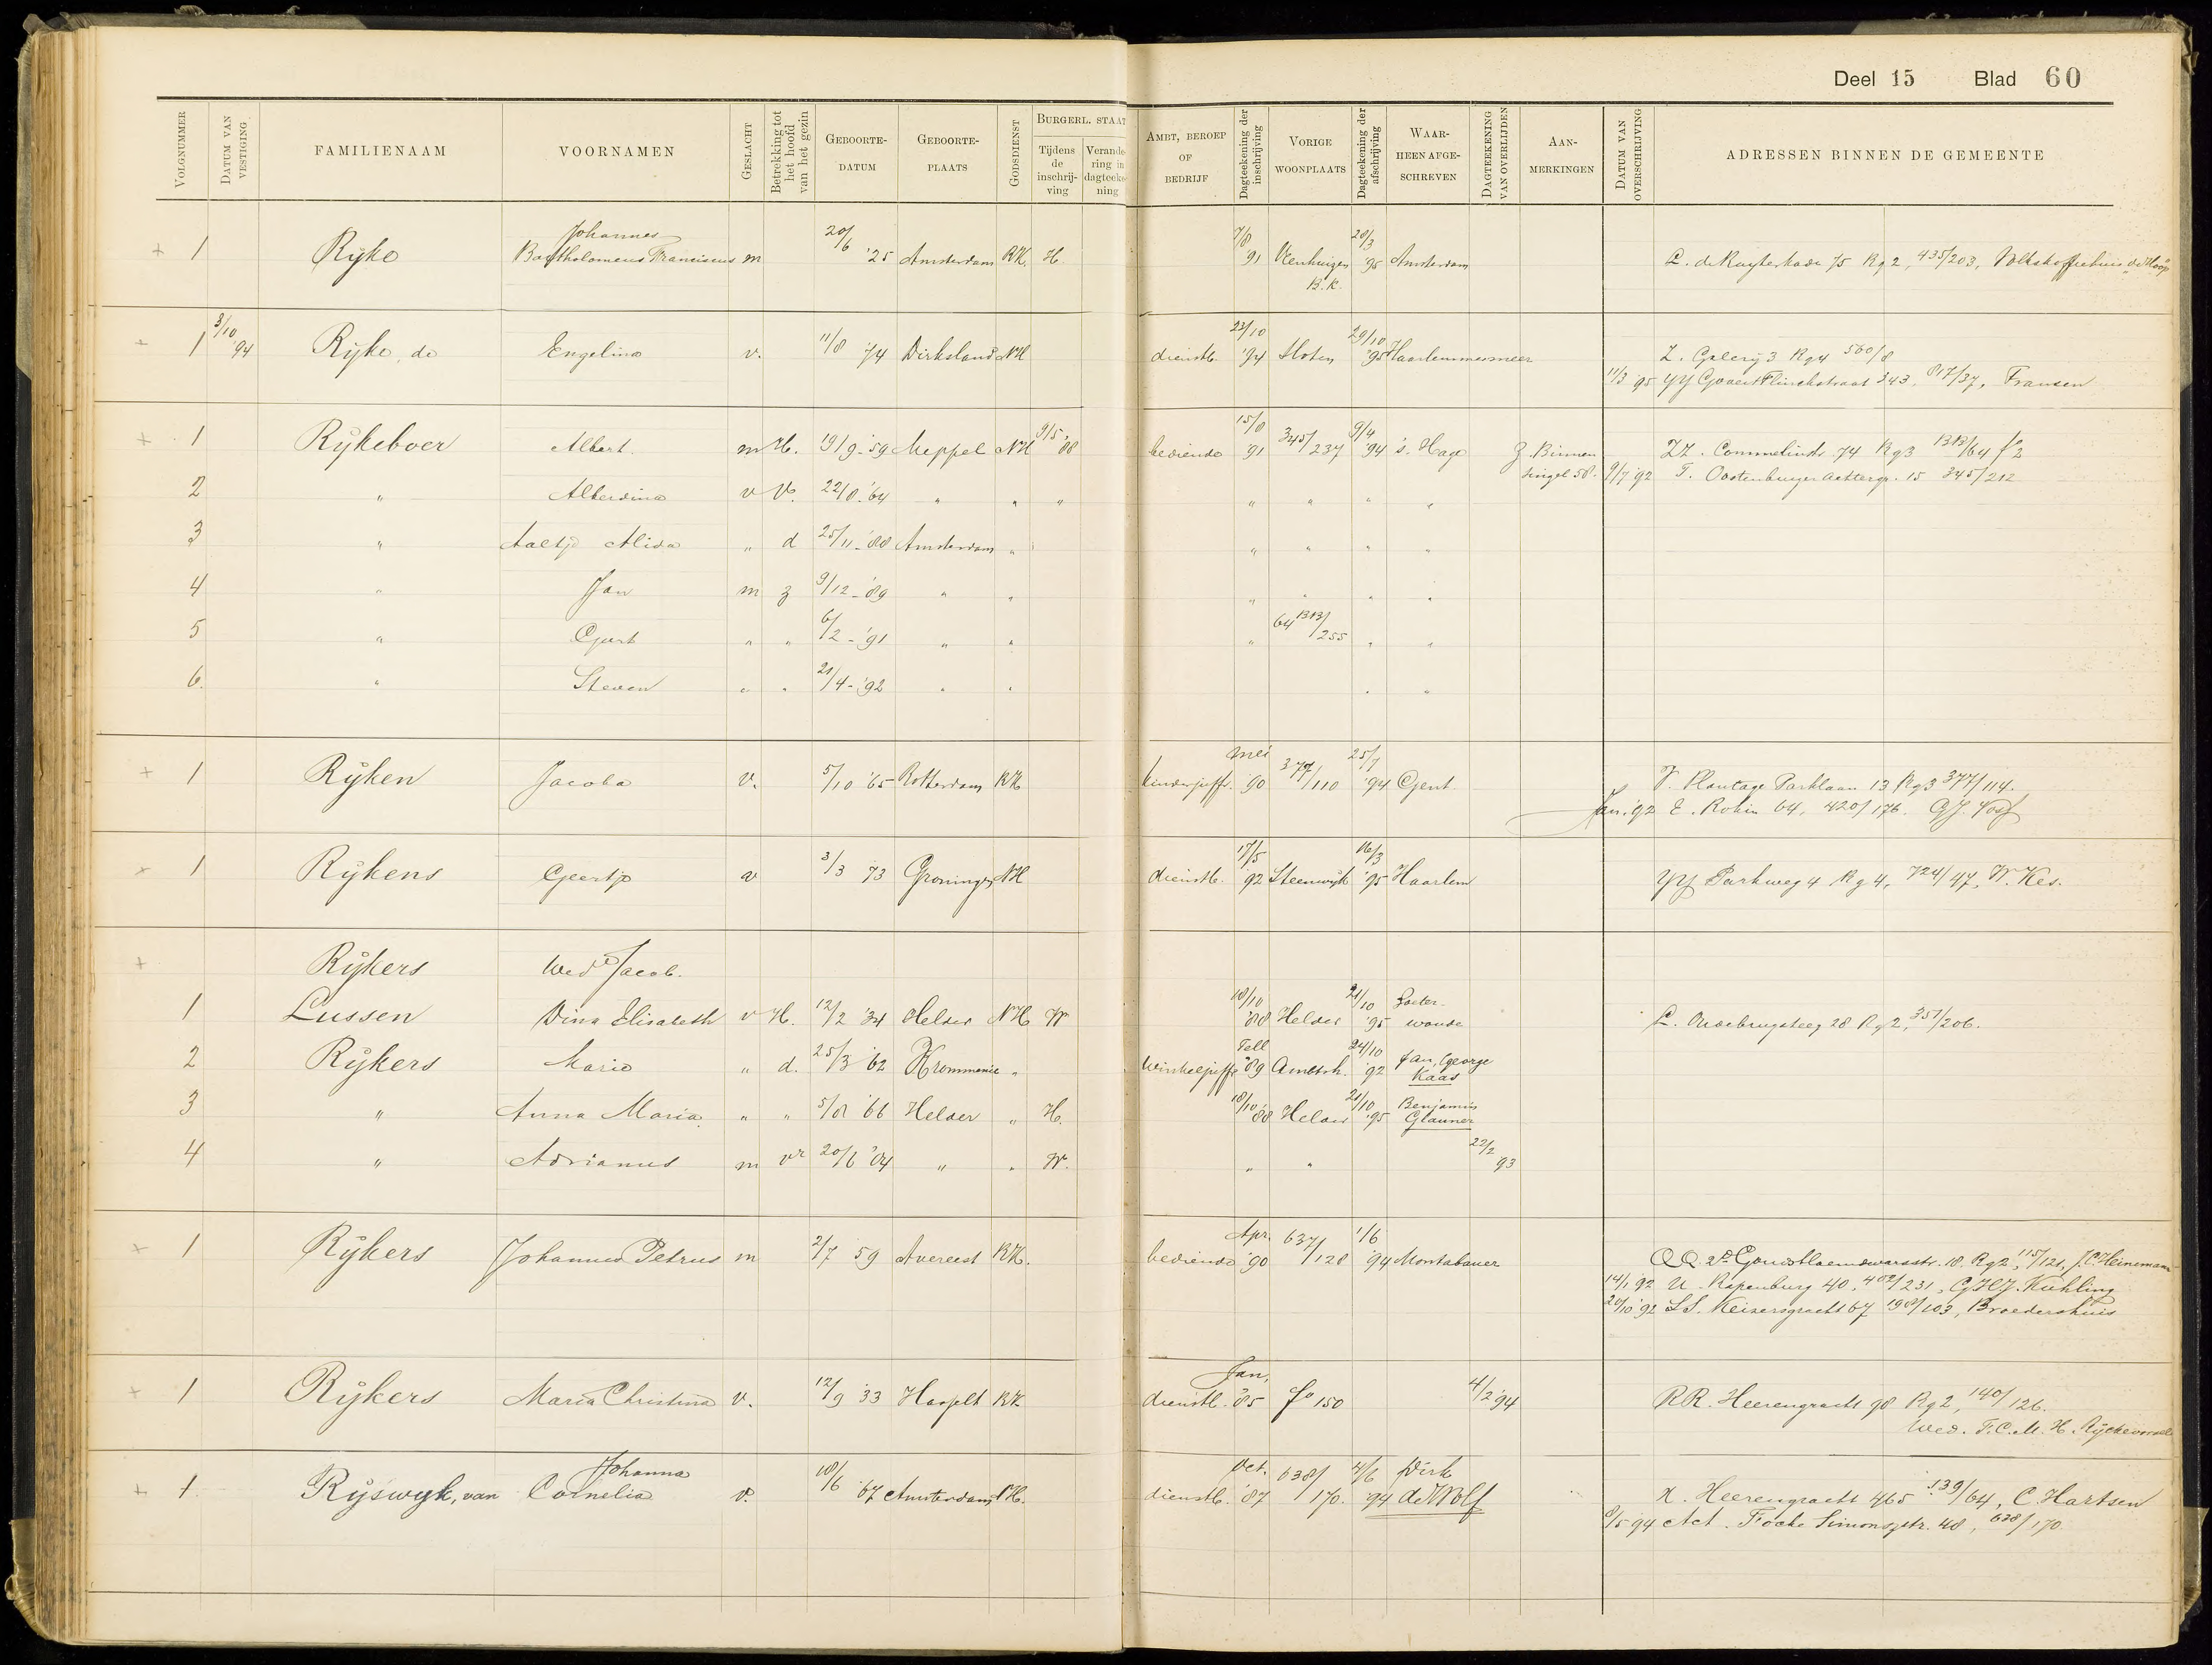 Deel 15 Blad 60
VOLGNUMMER
DATUM VAN VESTIGING
FAMILIENAAM
VOORNAMEN
GESLACHT
Betrekking tot het hoofd van het gezin
GEBOORTE-DATUM
GEBOORTE-PLAATS
GODSDIENST
BURGERL. STAAT
Tijdens de inschrijving
Verandering in dagteekening
AMBT, BEROEP OF BEDRIJF
Dagteekening der inschrijving
VORIGE WOONPLAATS
Dagteekening der afschrijving
WAARHEEN AFGESCHREVEN
DAGTEEKENING VAN OVERLIJDEN
AAN-MERKINGEN
DATUM VAN OVERSCHRIJVING
ADRESSEN BINNEN DE GEMEENTE
1 Ryke Johannes Bartholomeus Franciscus m 20/6 '25 Amsterdam RK. H. 7/8 '91 Venhuizen B.K. 28/3 '95 Amsterdam L. de Ruyterkade 75 Rg 2, 435/203, Volkskoffiehuis "de Hoop"
1 3/10 '94 Ryke, de Engelina v. 11/8 '74 Dirksland NH dienstb. 23/10 '94 Sloten 29/10 '95 Haarlemmermeer Z. Galerij 3 Rg 4 560/8
11/3 '95 YY Govert Flinckstraat 343. 817/37, Fransen
1 Rykeboer Albert m H. 19/9 - '59 Meppel NH 9/5 '88 bediende 15/8 91 345/237 9/4 '94 's Hage Z. Binnen ZZ. Commelinstr 74 Rg 3 BB/64 f 2
singel 58. 9/7 '92 T. Oostenburger Achtergr. 15 345/212
2 " Alberdina v V. 22/8 - '64 " " " " " " "
3 " Aaltje Alida " d 25/11 - '88 Amsterdam " " " " "
4 " Jan m z 9/12 - '89 " " " " " "
5 " Gjert " " 6/2 - '91 " " " 64 BB/255 " "
6. " Steven " " 21/4 - '92 " " " "
1 Ryken Jacoba v. 5/10 '65 Rotterdam RK kinderjuffr. Mei '90 377/110 25/7 '94 Gent V. Plantage Parklaan 13 Rg 3 377/114.
Jan. '92 E. Rokin 64, 420/176. G.J. Vos
1 Rykens Geertje v 3/3 73 Groningen NH dienstb. 17/5 '92 Steenwijk 16/3 '95 Haarlem YY Parkweg 4 Rg 4, 724/47, W. Kes.
Rykers Wed Jacob.
1 Lussen Dina Elisabeth v H. 12/2 '34 Helder NH W 18/10 '88 Helder 21/10 '95 Zoeterwoude L. Oudebrugsteeg 28 Rg 2, 351/206.
2 Rykers Maria " d. 25/3 '62 Krommenie " winkeljuffr Tell '89 24/10 '92 Jan George Kaas
3 " Anna Maria " " 5/8 '66 Helder " H. 18/10 '88 Helder 21/10 '95 Benjamin Glauner
4 " Adrianus m vr 20/6 '04 " " W. " " 22/2 93
1 Rykers Johannes Petrus m 2/7 '59 Avereest RK. bediende Apr. '90 637/128 1/6 '94 Montabauer QQ. 2e Goudsbloemdwarsstr. 18. Rg 2, 115/121, J.C. Heinemann
14/1 '92 U. Rapenburg 40, 402/231, G.H.J. Kuhling
20/10 '92 SS. Keizersgracht 67 198/103, Broedershuis
1 Rykers Maria Christina v. 12/9 '33 Hasselt RK dienstb. Jan. '85 f° 150 4/2 '94 RR. Heerengracht 98 Rg 2, 140/126.
Wed. F.C.M.H. Ryckevorsel
1 Ryswyk, van Johanna Cornelia v. 18/6 '67 Amsterdam NH. dienstb. Oct. '87 638/170. 4/6 '94 Dirk de Wolf X. Heerengracht 465 539/64, C. Hartsen
8/5 94 Act. Focke Simonszstr. 48, 638/170